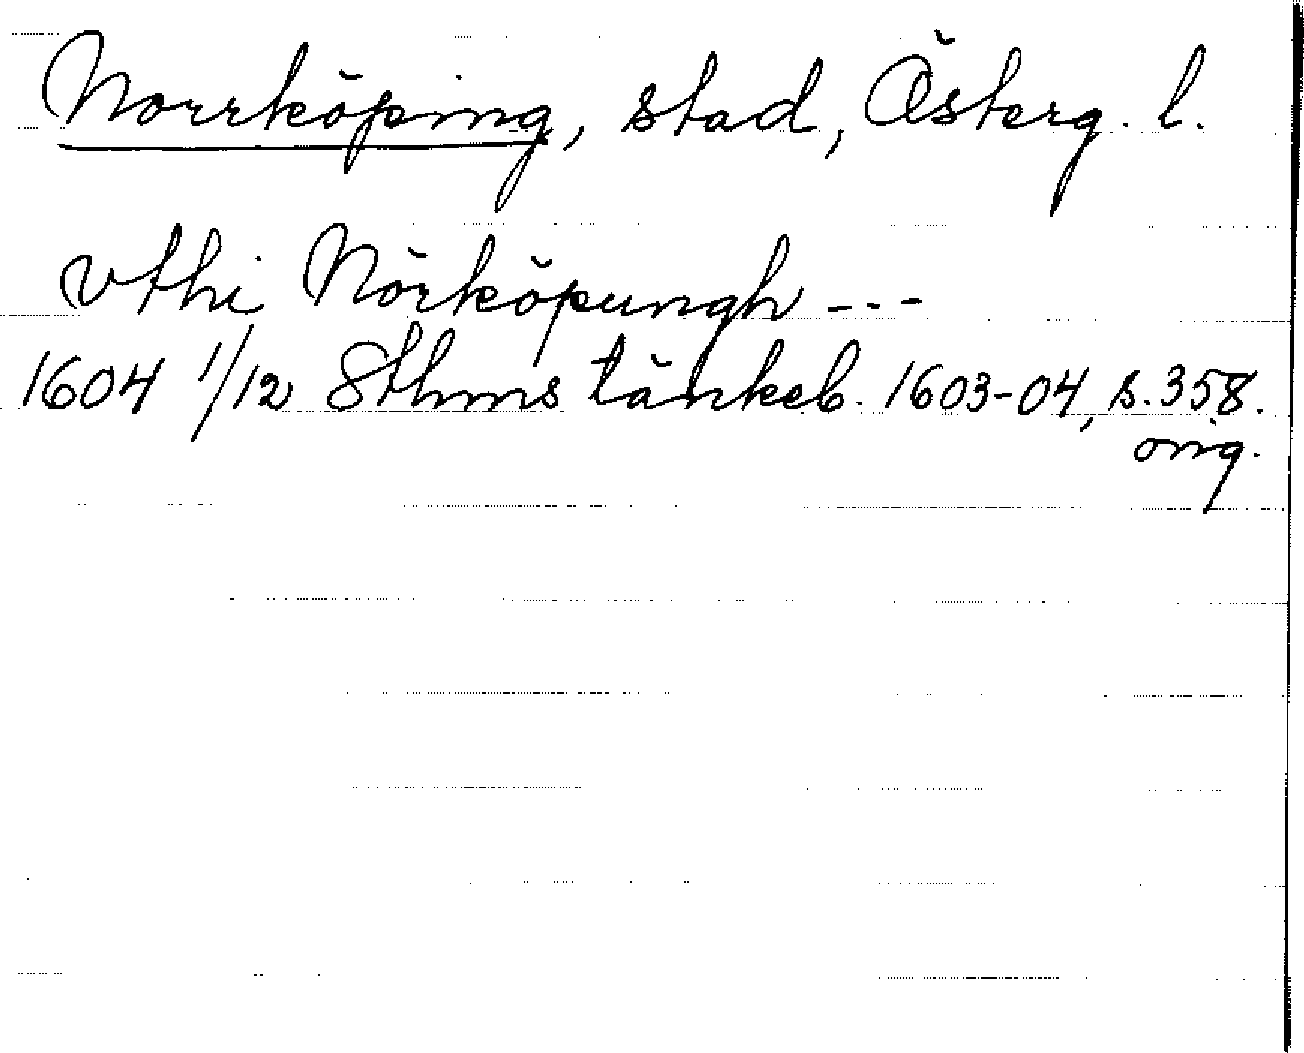 Norrköping, stad, Österg. l.
vthi Nörköpungh ---
1604 1/12 Sthms tänkeb. 1603-04, s. 358.
orig.